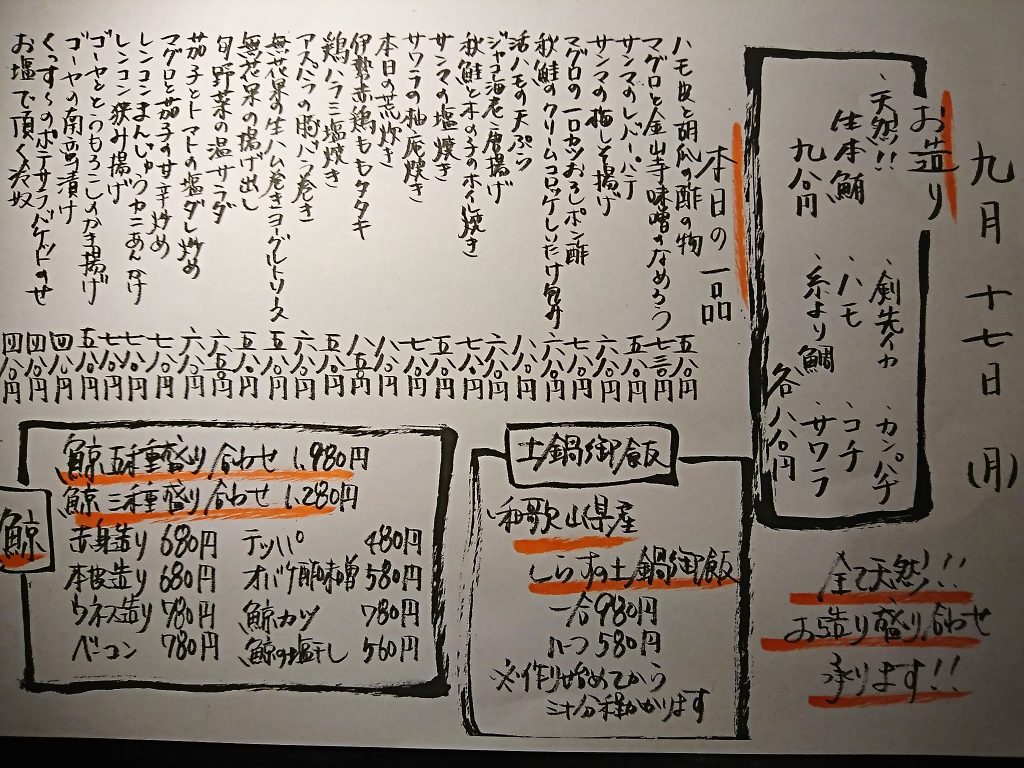 九月十七日(月)
お造り
、天然!!
生本鮪
九八〇円
、剣先イカ
、ハモ
、糸より鯛
、カンパチ
、コチ
、サワラ
各八八〇円
全て天然!!
お造り盛り合わせ
承ります!!
本日の一品
ハモ皮と胡瓜の酢の物 五八〇円
マグロと金山寺味噌のなめろう 七三〇円
サンマのレバーパテ 五八〇円
サンマの梅しそ揚げ 六八〇円
マグロの一口カツおろしポン酢 七八〇円
秋鮭のクリームコロッケしいたけ包み 六八〇円
活ハモの天ぷら 八八〇円
ジャコ海老唐揚げ 六八〇円
秋鮭と木の子のホイル焼き 七八〇円
サンマの塩焼き 五八〇円
サワラの柚庵焼き 七八〇円
本日の荒炊き 八八〇円
伊勢赤鶏ももタタキ 八五〇円
鶏ハラミ塩焼き 五八〇円
アスパラの豚バラ巻き 六八〇円
無花果の生ハム巻きヨーグルトソース 五八〇円
無花果の揚げ出し 五八〇円
旬野菜の温サラダ 六五〇円
茄子とトマトの塩ダレ炒め 六八〇円
マグロと茄子の甘辛炒め 七八〇円
レンコンまんじゅうカニあんかけ 七八〇円
レンコン挟み揚げ 七八〇円
ゴーヤととうもろこしのかき揚げ 五八〇円
ゴーヤの南蛮漬け 四八〇円
くっす〜のポテサラバゲットのせ 四八〇円
お塩で頂く冷奴 四八〇円
土鍋御飯
、和歌山県産
しらすの土鍋御飯
一合980円
ハーフ580円
※作り始めてから
三十分程かかります
鯨
鯨五種盛り合わせ 1,980円
鯨三種盛り合わせ 1,280円
赤身造り 680円
本皮造り 680円
ウネス造り 780円
ベーコン 780円
テッパ 480円
オバケ酢味噌 580円
鯨カツ 780円
鯨の塩干し 560円